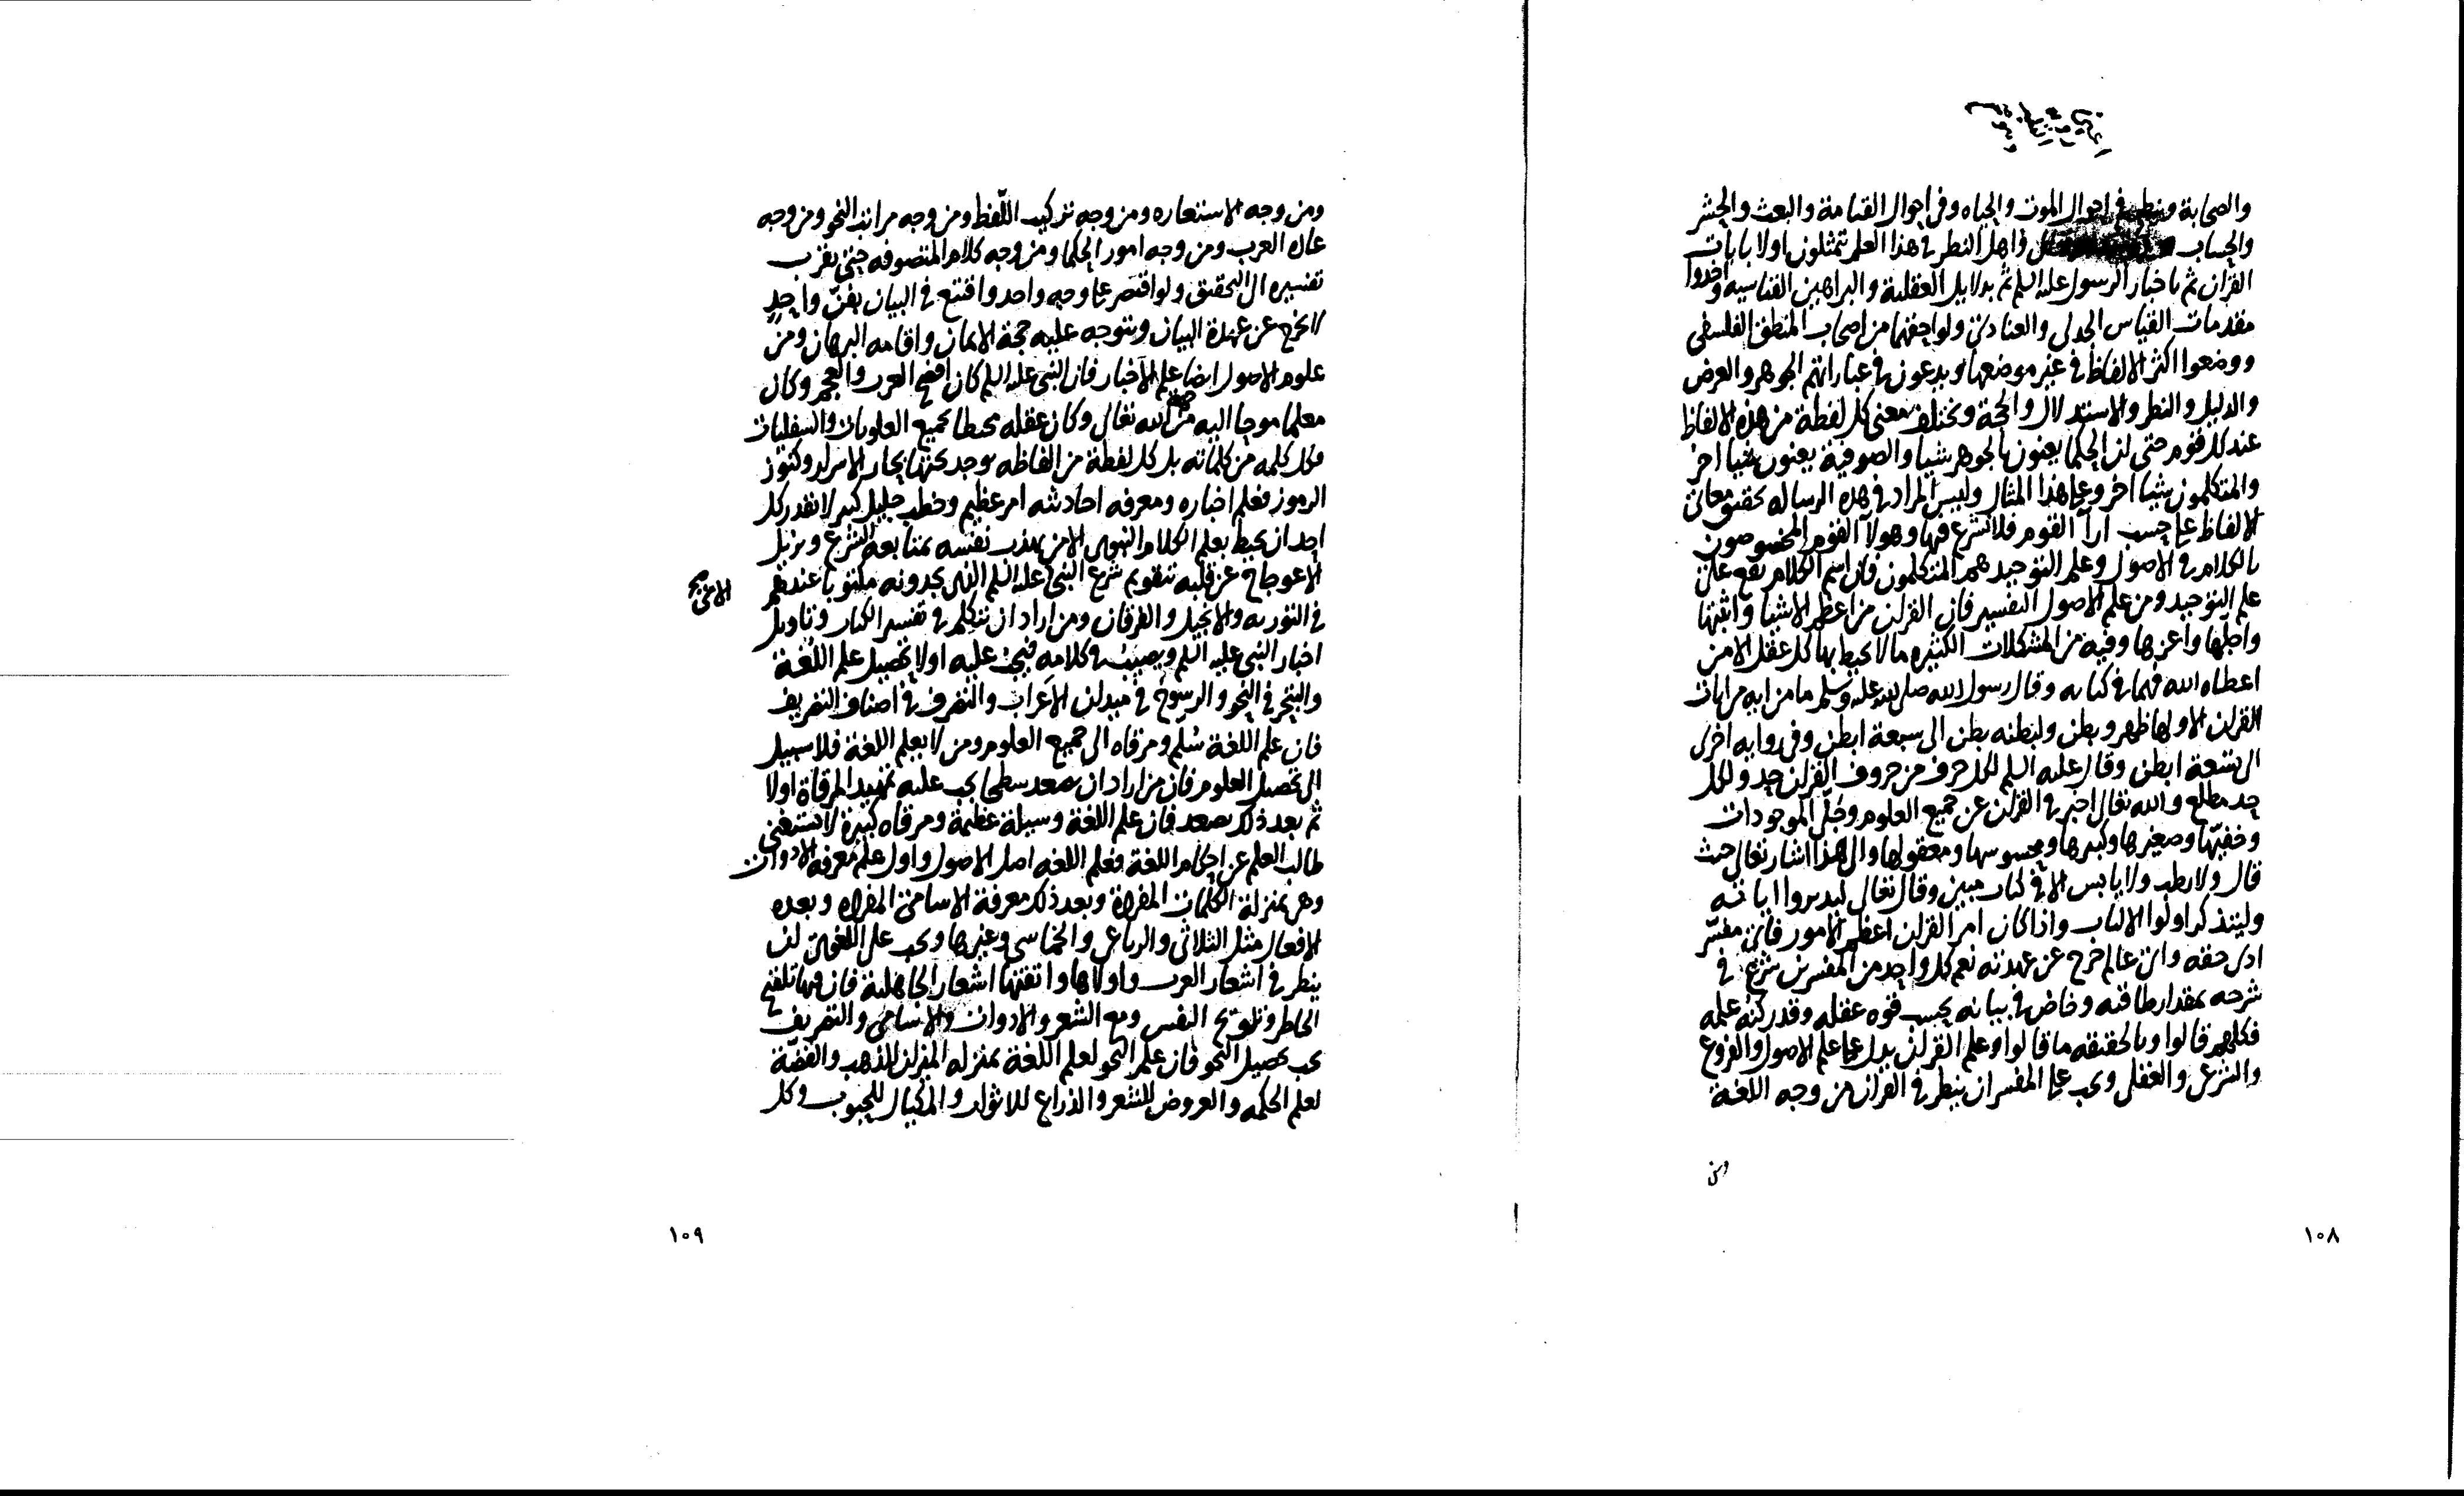 والصحابة وينظر في احوال الموت والحياه وفي احوال القيامة والبعث والحشر
والحساب واهل النظر في هذا العلم يتمثلون اولا بايات
القران ثم باخبار الرسول عليه السلم ثم بدلايل العقلية والبراهين القياسيه واخذوا
مقدمات القياس الجدلي والعنادي ولواحقهما من اصحاب المنطق الفلسفي
ووضعوا اكثر الالفاظ في غير موضعها ويدعون في عباراتهم الجوهر والعرض
والدليل والنظر والاستدلال والحجة ويختلف معنى كل لفظة من هذه الالفاظ
عند كل قوم حتى ان الحكما يعنون بالجوهر شيا والصوفية يعنون شيا اخر
والمتكلمون شيا اخر وعلى هذا المثال وليس المراد في هذه الرساله تحقيق معاني
الالفاظ على حسب ارآ القوم فلا نشرع فيها وهولآ القوم المخصوصون
بالكلام في الاصول وعلم التوحيد هم المتكلمون فان اسم الكلام يقع على
علم التوحيد ومن علم الاصول التفسير فان القران من اعظم الاشيا وابينها
واجلها واعزها وفيه من المشكلات الكثيره ما لا يحيط بها كل عقل الا من
اعطاه الله فهما في كتابه وقال رسول الله صلى الله عليه وسلم ما من ايه من ايات
القران الا ولها ظهر وبطن ولبطنه بطن الى سبعة ابطن وفي روايه اخرى
الى تسعة ابطن وقال عليه السلم لكل حرف من حروف القران حد ولكل
حد مطلع والله تعالى اخبر في القران عن جميع العلوم وجلي الموجودات
وخفيها وصغيرها وكبيرها ومحسوسها ومعقولها والى هذا اشار تعالى حيث
قال ولا رطب ولا يابس الا في كتاب مبين وقال تعالى ليدبروا اياته
وليتذكر اولوا الالباب واذا كان امر القران اعظم الامور فاي مفسر
ادى حقه واي عالم خرج عن عهدته نعم كل واحد من المفسرين شرع في
شرحه بمقدار طاقته وخاض في بيانه بحسب قوه عقله وقدر كنه علمه
فكلهم قالوا وبالحقيقه ما قالوا وعلم القران يدل على علم الاصول والفروع
والشرعي والعقلي ويجب على المفسر ان ينظر في القران من وجه اللغة
ومن
١٠٨
ومن وجه الاستعاره ومن وجه تركيب اللفظ ومن وجه مراتب النحو ومن وجه
عاده العرب ومن وجه امور الحكما ومن وجه كلام المتصوفه حتى يقرب
تفسيره الى التحقيق ولو اقتصر على وجه واحد واقتنع في البيان بفن واحد
لا يخرج عن عهدة البيان ويتوجه عليه حجة الايمان واقامه البرهان ومن
علوم الاصول ايضا علم الاخبار فان النبي عليه السلم كان افصح العرب والعجم وكان
معلما موحيا اليه من الله تعالى وكان عقله محيطا بجميع العلويات والسفليات
فكل كلمه من كلماته بل كل لفظة من الفاظه يوجد تحتها بحار الاسرار وكنوز
الرموز فعلم اخباره ومعرفه احاديثه امر عظيم وخطب جليل كبير لا يقدر كل
احد ان يحيط بعلم الكلام النبوي الا من يهذب نفسه بمتابعة الشرع ويزيل
الاعوجاج عن قلبه بتقويم شرع النبي عليه السلم الذي يجدونه مكتوبا عندهم
الامي صح
في التوريه والانجيل والفرقان ومن اراد ان يتكلم في تفسير الكتاب وتاويل
اخبار النبي عليه السلم ويصيب في كلامه فيجب عليه اولا تحصيل علم اللغة
والتبحر في النحو والرسوخ في ميدان الاعراب والتصرف في اصناف التصريف
فان علم اللغة سلم ومرقاه الى جميع العلوم ومن لا يعلم اللغة فلا سبيل
الى تحصيل العلوم فان من اراد ان يصعد سطحا يجب عليه تمهيد المرقاة اولا
ثم بعد ذلك يصعد فان علم اللغة وسيلة عظيمة ومرقاه كبيرة لا يستغني
طالب العلم عن احكام اللغة فعلم اللغه اصل الاصول واول علم معرفه الادوات
وهي بمنزلة الكلمات المفردة وبعد ذلك معرفة الاسامي المفرده وبعده
الافعال مثل الثلاثي والرباعي والخماسي وغيرها ويجب على اللغوي ان
ينظر في اشعار العرب واولاها واتقنها اشعار الجاهلية فان فيها تلقيح
الخاطر وترويح النفس ومع الشعر والادوات والاسامي والتصريف
يجب تحصيل النحو فان علم النحو لعلم اللغة بمنزله الميزان للذهب والفضة
لعلم الحكمه والعروض للشعر والذراع للاثواب والمكيال للحبوب وكل
١٠٩